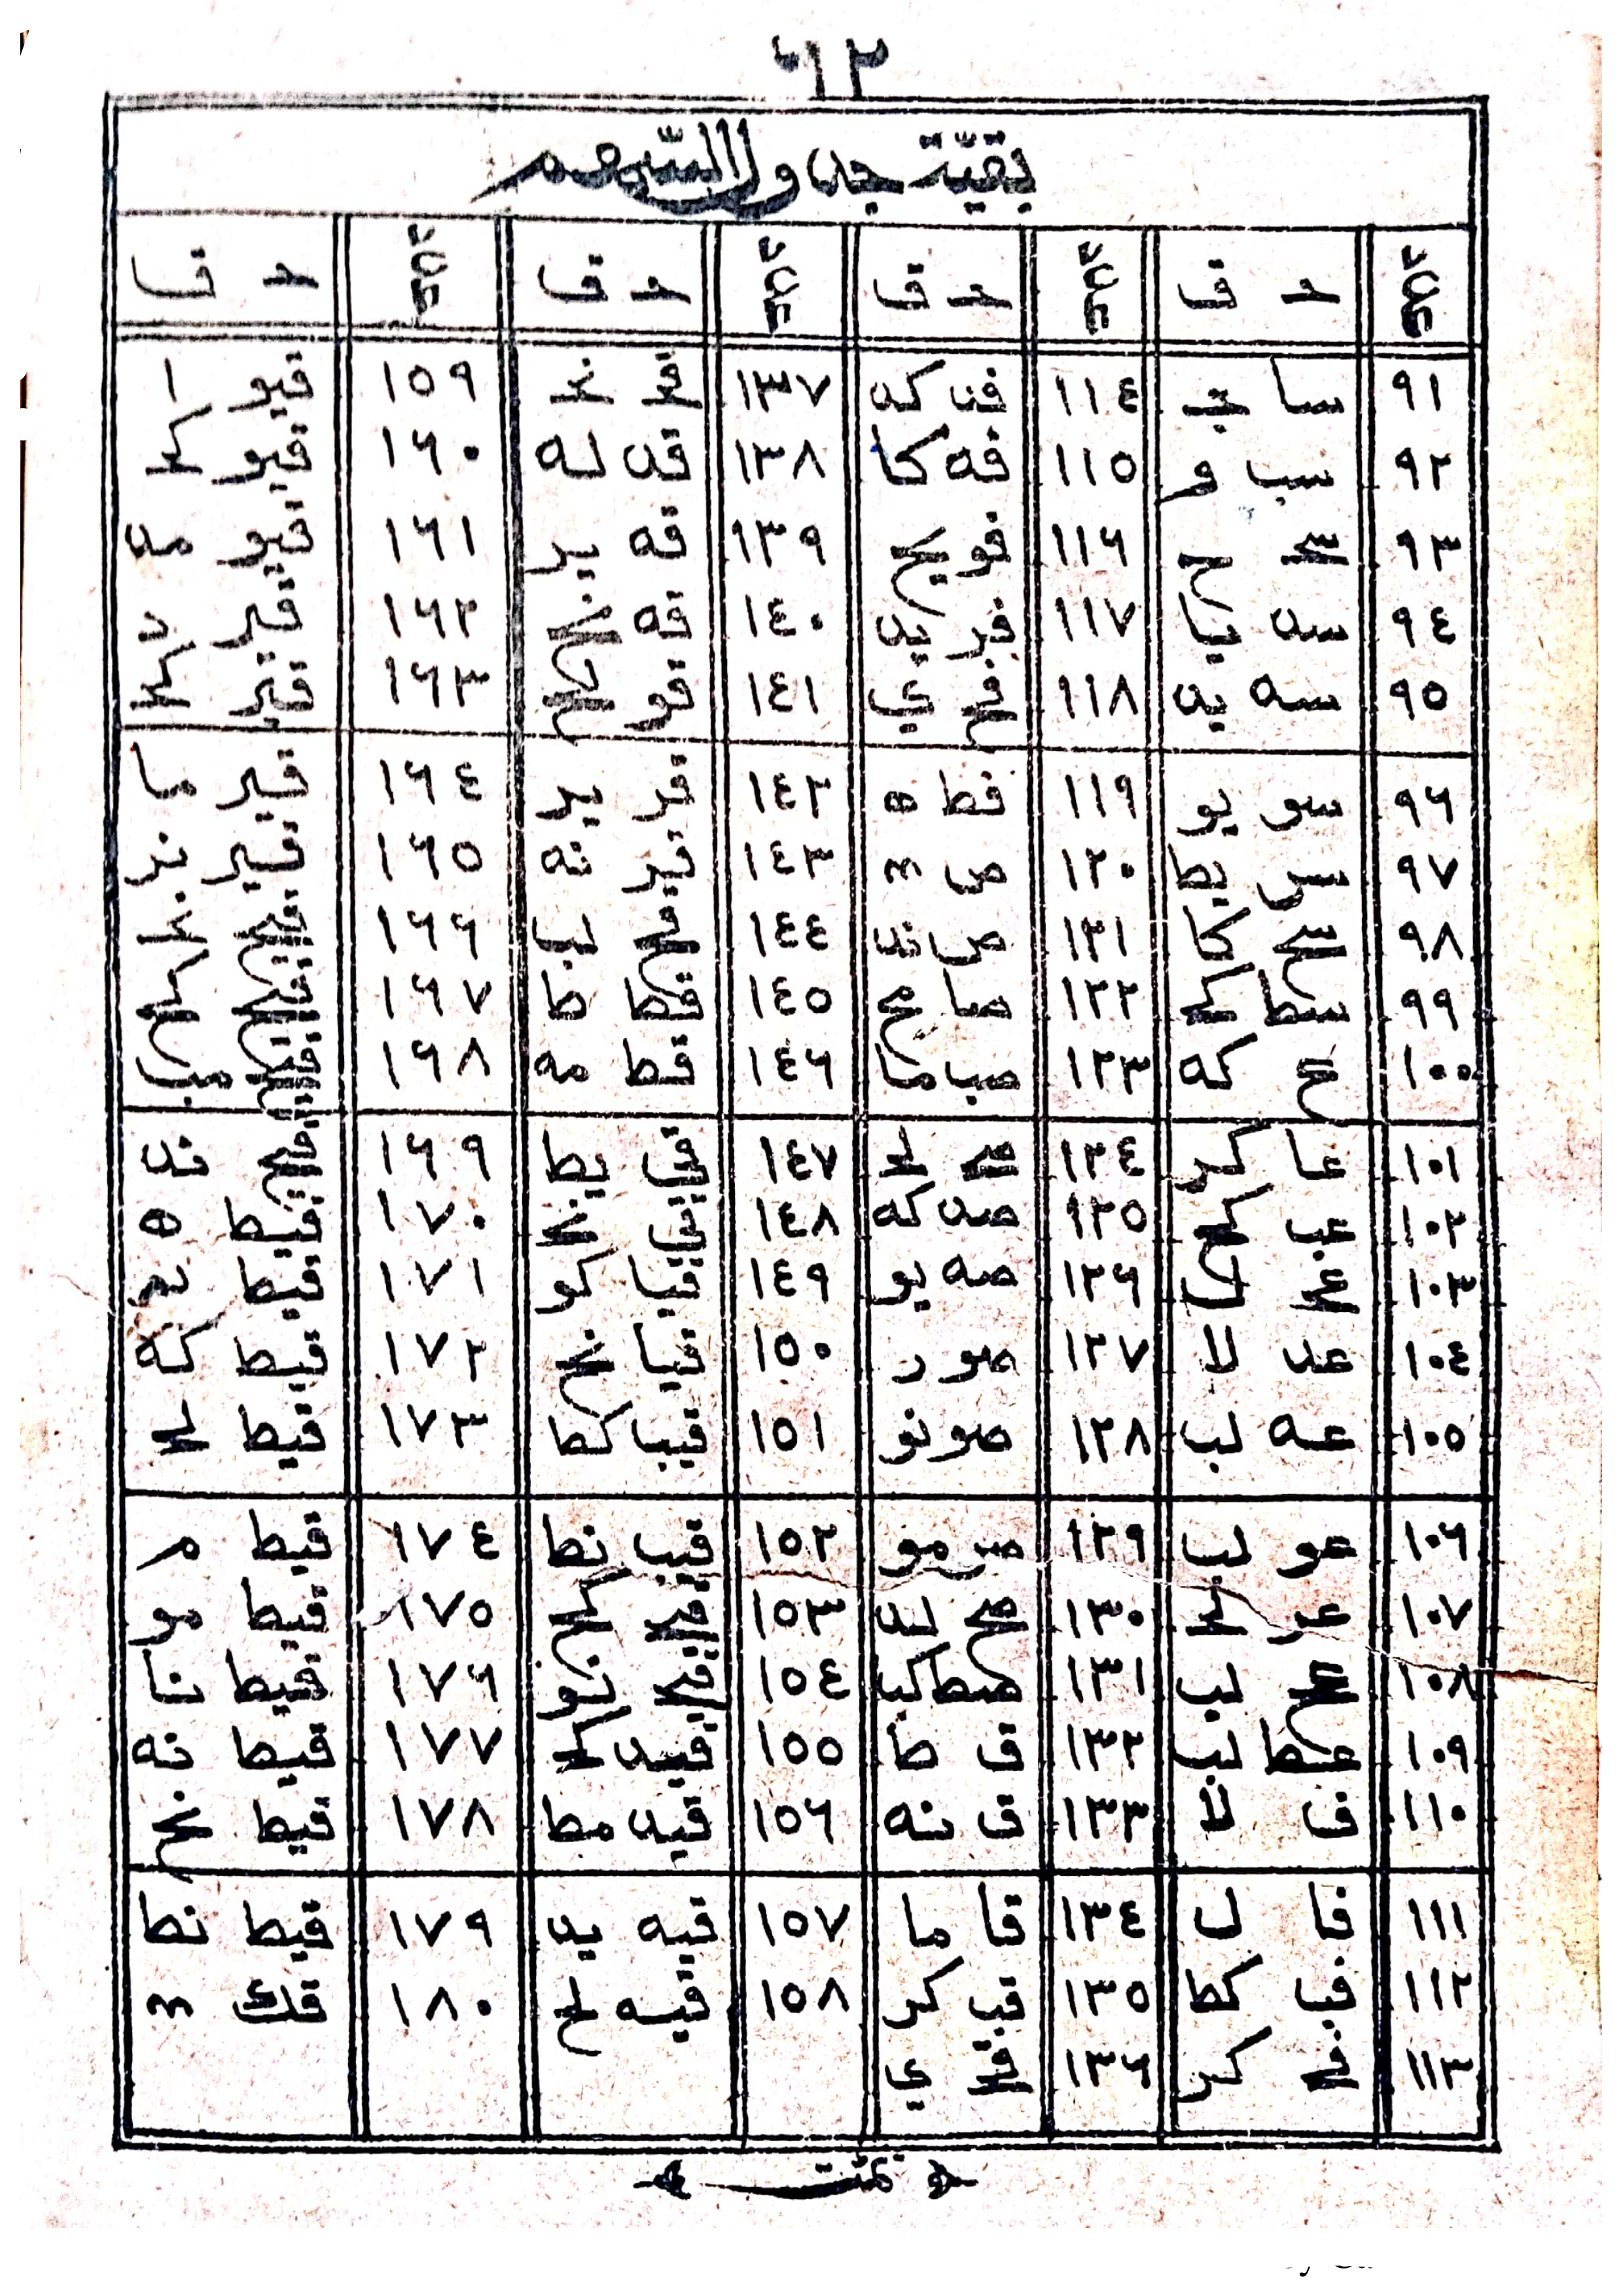 بقيّة جدول السّهم
حـ ق حـ ق حـ ق حـ ق
٩١ سا ج ١١٤ فد كه ١٣٧ قج نج ١٥٩ قيو ا
٩٢ سب و ١١٥ فه كا ١٣٨ قد له ١٦٠ قيو كج
٩٣ سج ح ١١٦ فو يح ١٣٩ قه يز ١٦١ قيو مد
٩٤ سد يا ١١٧ فز يد ١٤٠ قه نح ١٦٢ قيز د
٩٥ سه يد ١١٨ فح ي ١٤١ قو لح ١٦٣ قيز كج
٩٦ سو يو ١١٩ فط ه ١٤٢ قز يز ١٦٤ قيز ما
٩٧ سز يط ١٢٠ ص ١٤٣ قز نه ١٦٥ قيز نز
٩٨ سح كا ١٢١ ص ند ١٤٤ قح لب ١٦٦ قيح يج
٩٩ سط كج ١٢٢ صا مح ١٤٥ قط ط ١٦٧ قيح كح
١٠٠ ع كه ١٢٣ صب ما ١٤٦ قط مه ١٦٨ قيح مب
١٠١ عا كز ١٢٤ صج لج ١٤٧ قي يط ١٦٩ قيح ند
١٠٢ عب كح ١٢٥ صد كه ١٤٨ قي نج ١٧٠ قيط ه
١٠٣ عج ل ١٢٦ صه يو ١٤٩ قيا كو ١٧١ قيط يه
١٠٤ عد لا ١٢٧ صو ز ١٥٠ قيا نح ١٧٢ قيط كه
١٠٥ عه لب ١٢٨ صو نو ١٥١ قيب كط ١٧٣ قيط لج
١٠٦ عو لب ١٢٩ صز مو ١٥٢ قيب نط ١٧٤ قيط م
١٠٧ عز لج ١٣٠ صح لد ١٥٣ قيج كح ١٧٥ قيط مو
١٠٨ عح لب ١٣١ صط كب ١٥٤ قيج نو ١٧٦ قيط نا
١٠٩ عط لب ١٣٢ ق ط ١٥٥ قيد كج ١٧٧ قيط نه
١١٠ ف لا ١٣٣ ق نه ١٥٦ قيد مط ١٧٨ قيط نح
١١١ فا ل ١٣٤ قا ما ١٥٧ قيه يد ١٧٩ قيط نط
١١٢ فب كط ١٣٥ قب كز ١٥٨ قيه لح ١٨٠ قك
١١٣ فج كز ١٣٦ قج ي
تمّت